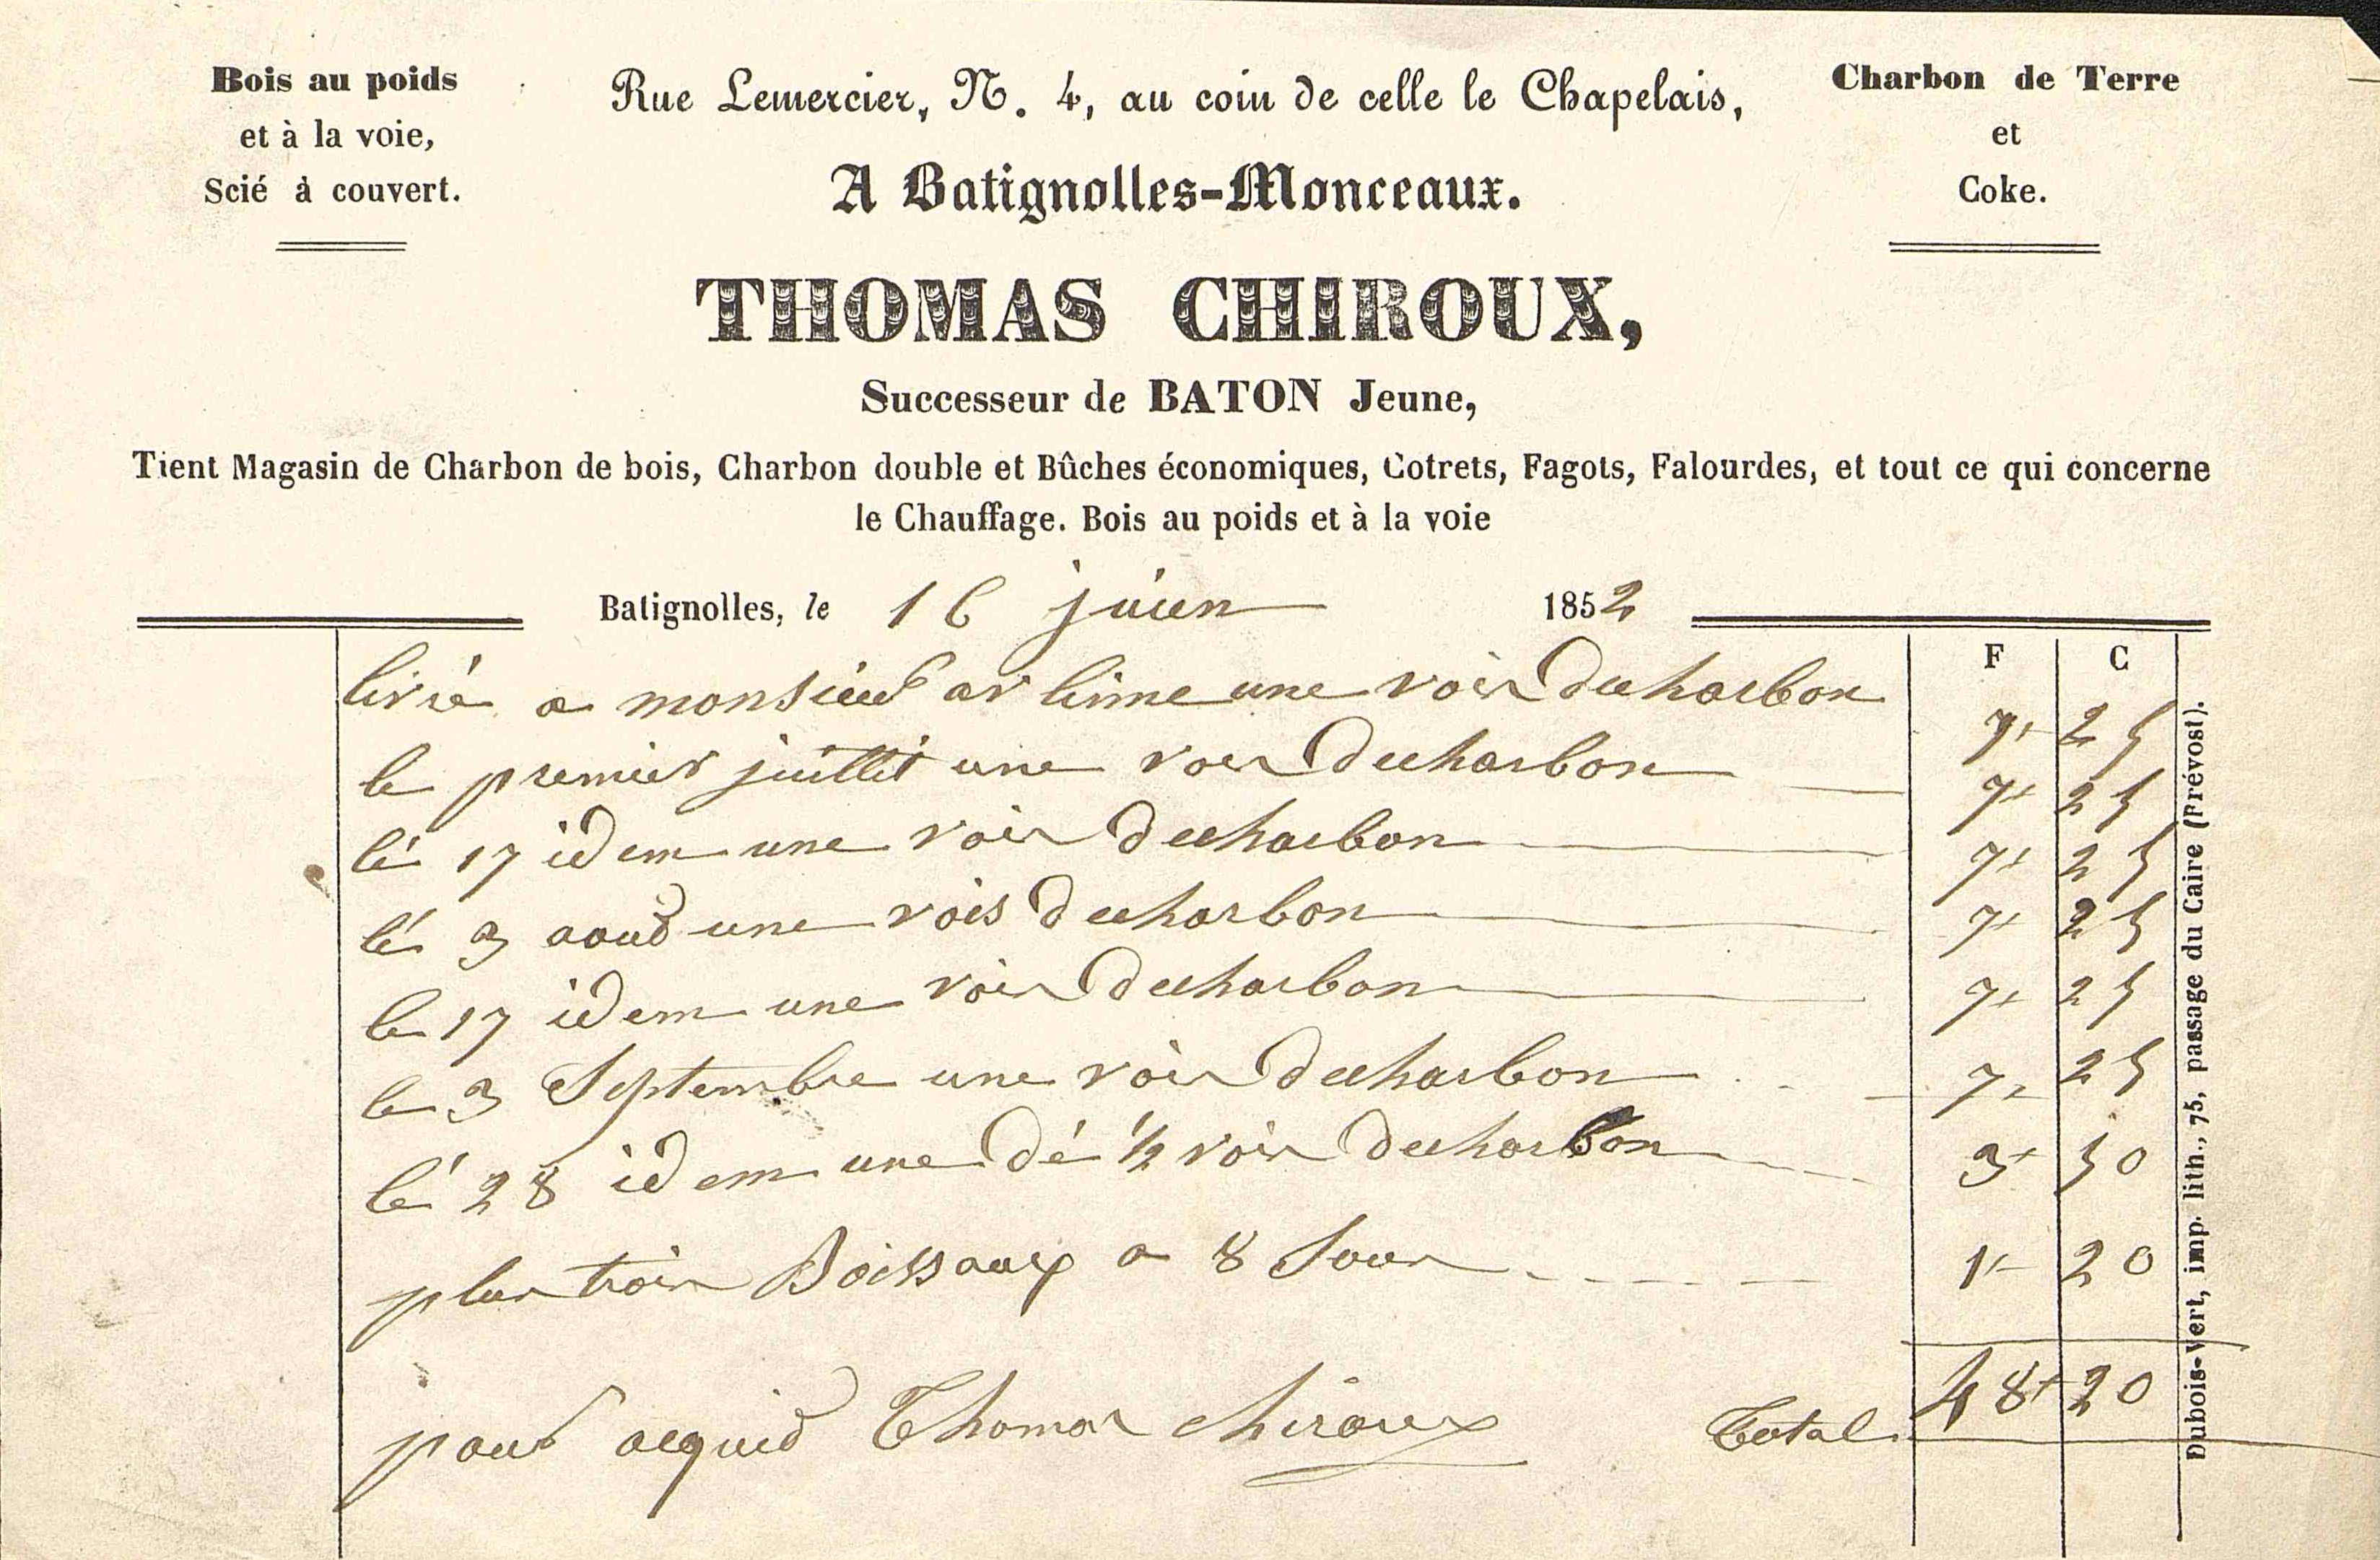 Bois au poids
et à la voie,
Scié à couvert.
Rue Lemercier, N. 4, au coin de celle le Chapelais,
A Batignolles-Monceaux.
Charbon de Terre
et
Coke.
THOMAS CHIROUX,
Successeur de BATON Jeune,
Tient Magasin de Charbon de bois, Charbon double et Bûches économiques, Cotrets, Fagots, Falourdes, et tout ce qui concerne
le Chauffage. Bois au poids et à la voie
Batignolles, le 16 juien 1852
F C
livré a monsieur une vois decharbon 7 25
le premier juillit une vois decharbon 7 25
lé 17 idem une vois decharbon 7 25
lé 3 aoud une vois decharbon 7 25
le 17 idem une vois decharbon 7 25
le 3 Septembre une vois decharbon 7 25
lé 28 idem une dé 1/2 vois decharbon 3 50
plus trois Boissaux a 8 Sous 1 20
pour acquid Thomas chiroux Total 48 20
Dubois-Vert, imp. lith., 75, passage du Caire (Prévost).